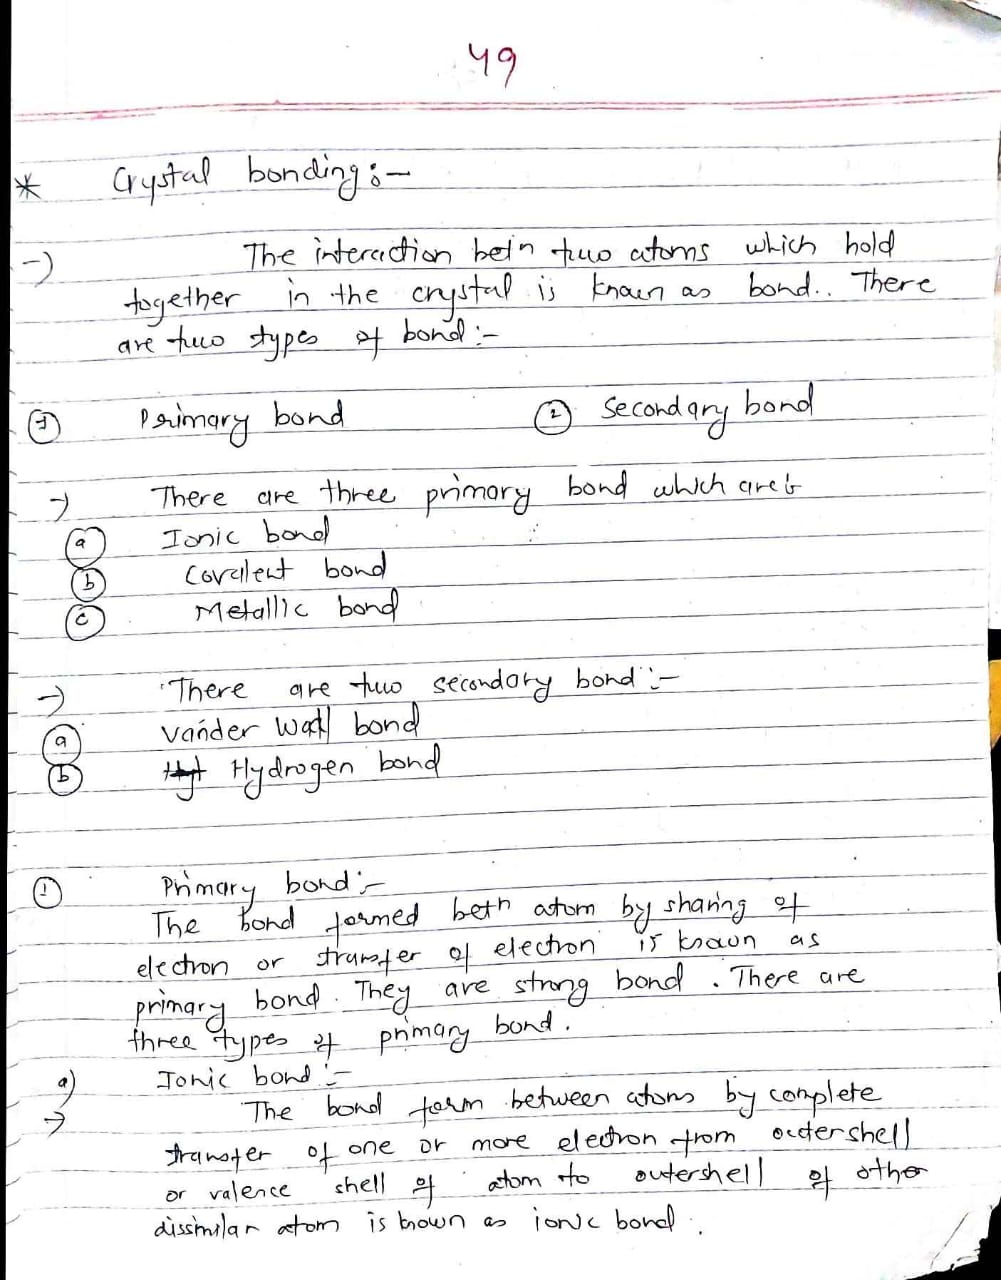 49
* Crystal bonding :-
→ The interaction betn two atoms which hold
together in the crystal is known as bond.. There
are two types of bond :-
① Primary bond ② Secondary bond
→ There are three primary bond which are :-
ⓐ Ionic bond
ⓑ Covalent bond
ⓒ Metallic bond
→ There are two secondary bond :-
ⓐ Vander Wall bond
ⓑ Hydrogen bond
① Primary bond :-
The bond formed betn atom by sharing of
electron or transfer of electron is known as
primary bond. They are strong bond. There are
three types of primary bond.
a) Ionic bond :-
→ The bond form between atoms by complete
transfer of one or more electron from outershell
or valence shell of atom to outershell of other
dissimilar atom is known as ionic bond.